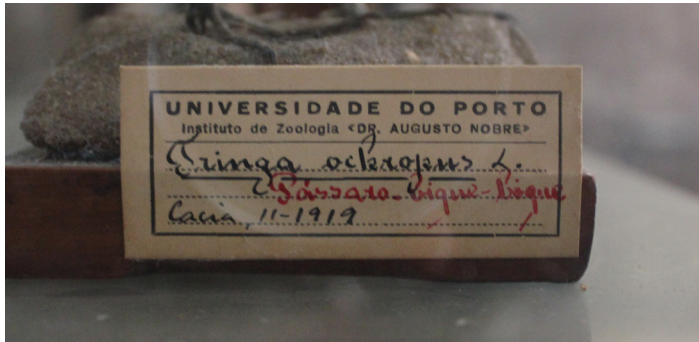 UNIVERSIDADE DO PORTO
Instituto de Zoologia «DR. AUGUSTO NOBRE»
Tringa ochropus L.
Pássaro-bique-bique
Cacia, 11-1919